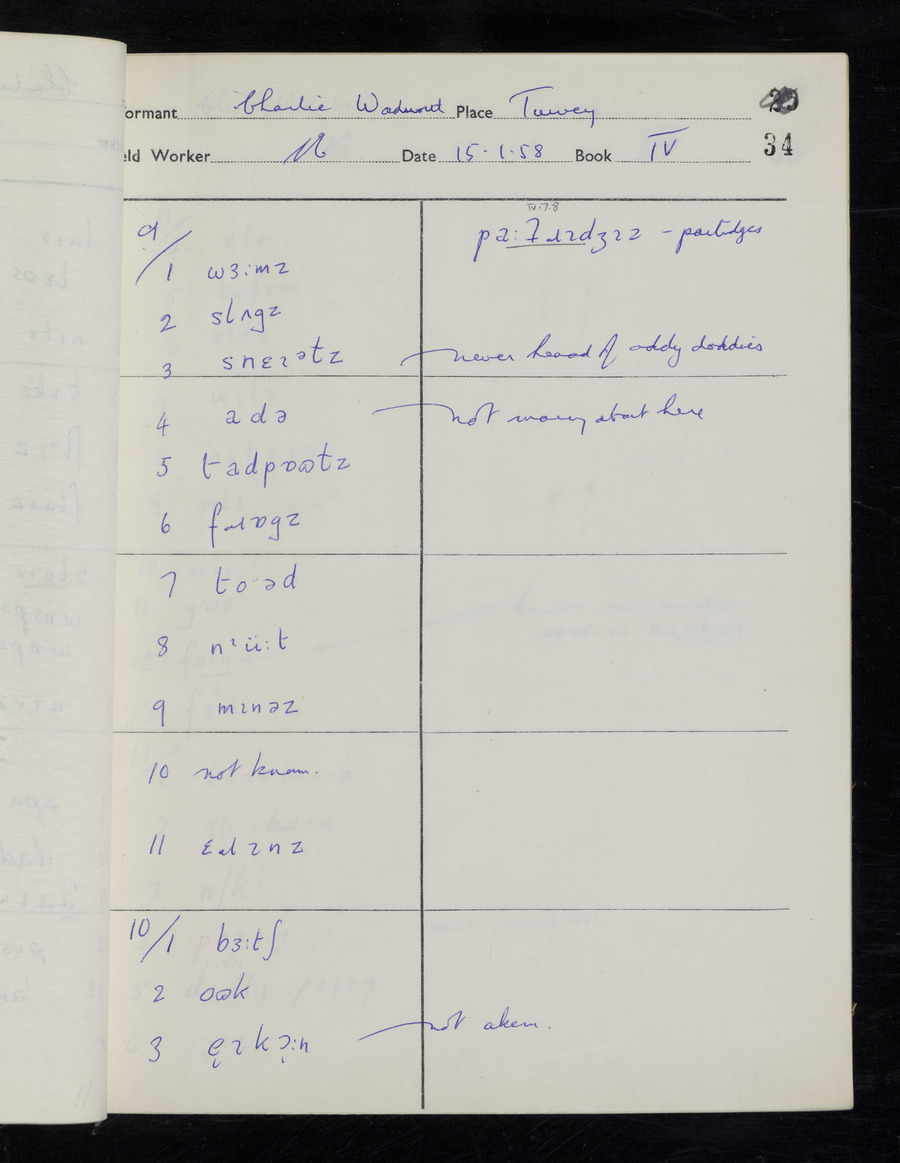 ormant Charlie Place Turvey
34
eld Worker Date 15·1·58 Book IV
IV.7.8
9/ – partridges
1 wɜ:mz
2 slʌgz
3 snɛɪətz never heard of oddy doddies
4 adə not many about here
5 tadpɷɷtz
6 fɹɒgz
7 to·əd
8 nᶦü:t
9 mɪnəz
10 not known.
11 ɛɹɪnz
10/1 bɜ:tʃ
2 oɷk
3 not akern.